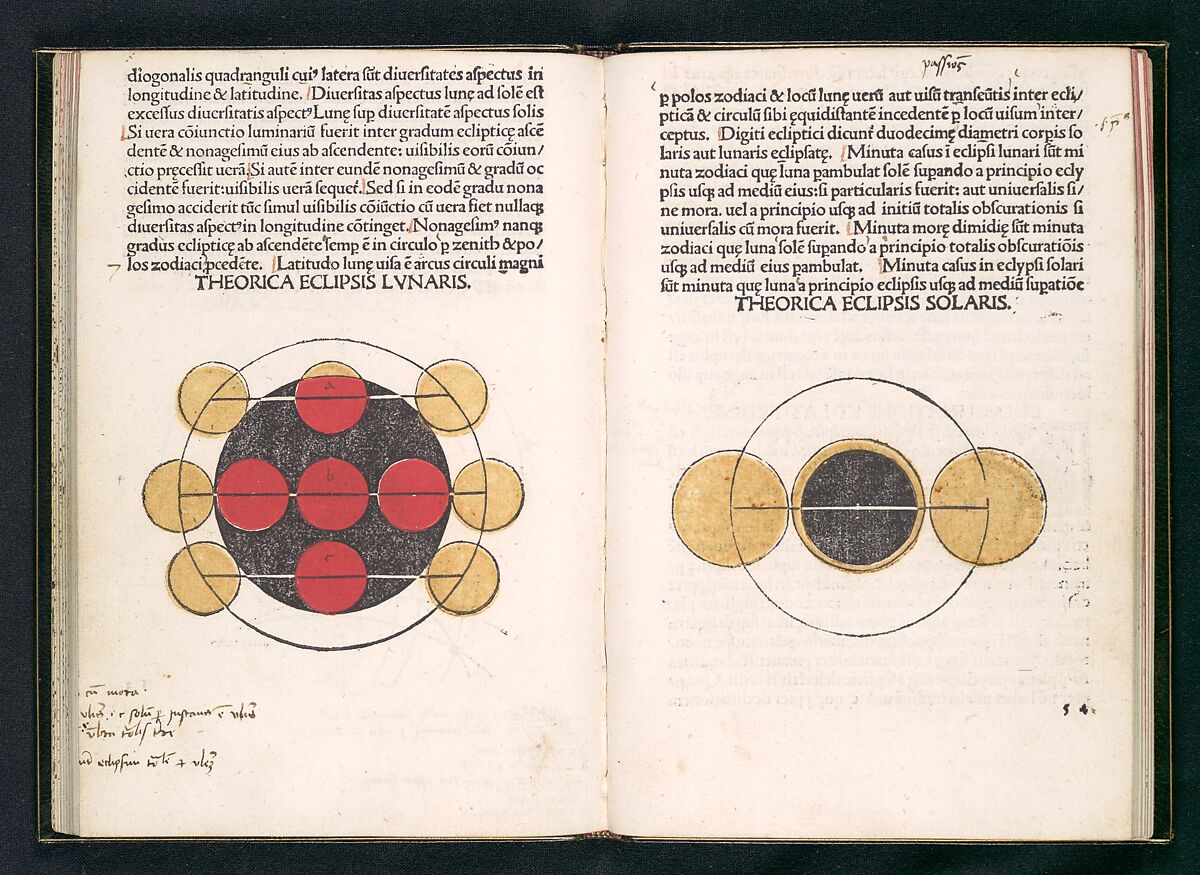 diogonalis quadranguli cuiꝰ latera sūt diuersitates aspectus in
longitudine & latitudine. Diuersitas aspectus lunę ad solē est
excessus diuersitatis aspectꝰ Lunę sup̱ diuersitatē aspectus solis
Si uera cōiunctio luminariū fuerit inter gradum eclipticę ascē
dentē & nonagesimū eius ab ascendente: uisibilis eorū cōiun/
ctio pręcessit uerā. Si autē inter eundē nonagesimū & gradū oc
cidentē fuerit: uisibilis uerā sequet̄. Sed si in eodē gradu nona
gesimo acciderit tūc simul uisibilis cōiūctio cū uera fiet nullaqꝫ
diuersitas aspectꝰ in longitudine cōtinget. Nonagesimꝰ nanqꝫ
gradus eclipticę ab ascendēte semp̱ ē in circulo ꝑ zenith & po/
los zodiaci ꝓcedēte. Latitudo lunę uisa ē arcus circuli magni
THEORICA ECLIPSIS LVNARIS.
a
b
c
cū mora
passiōꝫ
ꝑ polos zodiaci & locū lunę uerū aut uisū transeūtis inter ecli/
pticā & circulū sibi ęquidistantē incedentē ꝑ locū uisum inter/
ceptus. Digiti ecliptici dicunt̄ duodecimę diametri corp̱is so
laris aut lunaris eclipsatę. Minuta casus ī eclipsi lunari sūt mi
nuta zodiaci quę luna pambulat solē supando a principio ecly
psis usqꝫ ad mediū eius: si particularis fuerit: aut uniuersalis si/
ne mora. uel a principio usqꝫ ad initiū totalis obscurationis si
uniuersalis cū mora fuerit. Minuta morę dimidię sūt minuta
zodiaci quę luna solē supando a principio totalis obscuratiōis
usqꝫ ad mediū eius pambulat. Minuta casus in eclypsi solari
sūt minuta quę luna a principio eclipsis usqꝫ ad mediū supatiōe
THEORICA ECLIPSIS SOLARIS.
54.